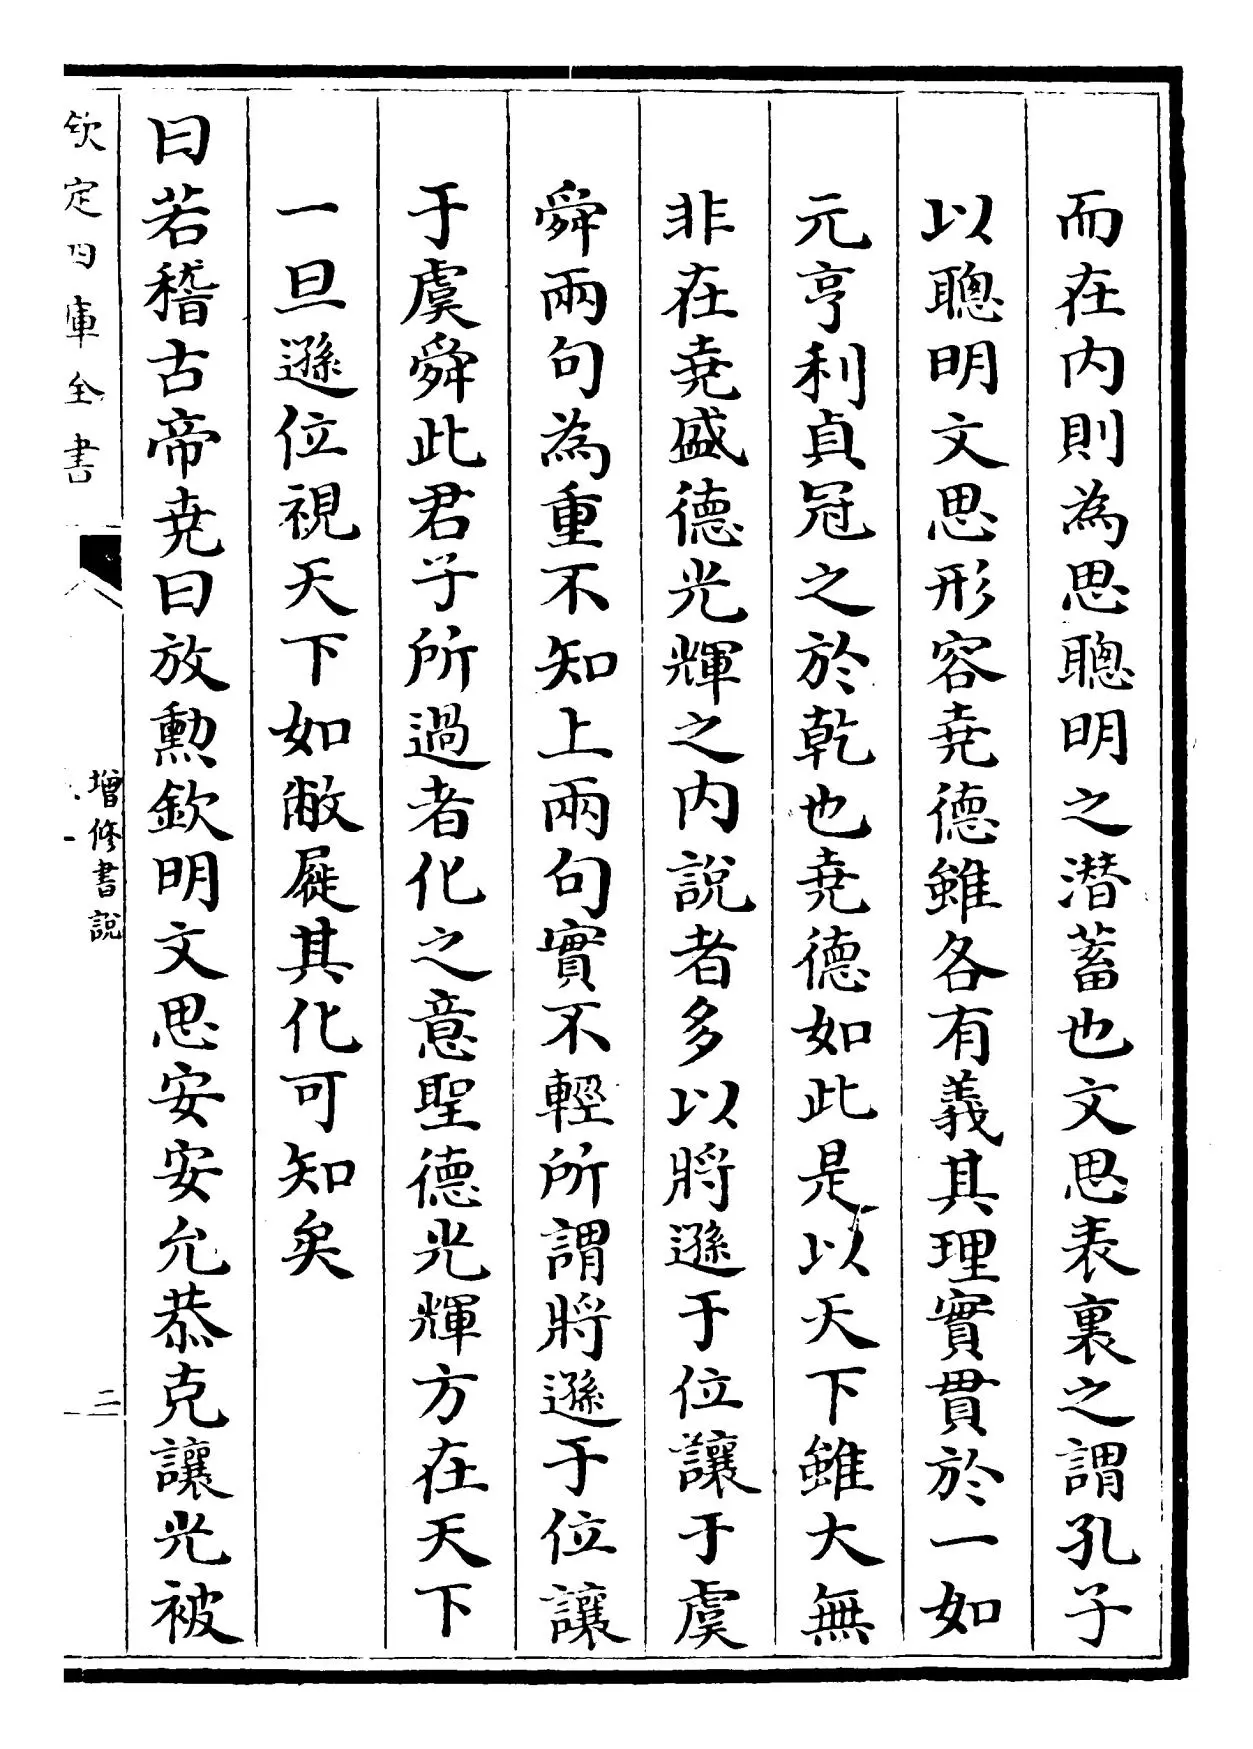 而在内則為思聰明之潜蓄也文思表裏之謂孔子
以聰明文思形容堯德雖各有義其理實貫於一如
元亨利貞冠之於乾也堯德如此是以天下雖大無
非在堯盛德光輝之内說者多以將遜于位讓于虞
舜兩句為重不知上兩句實不輕所謂將遜于位讓
于虞舜此君子所過者化之意聖德光輝方在天下
一旦遜位視天下如敝屣其化可知矣
曰若稽古帝堯曰放勲欽明文思安安允恭克讓光被
欽定四庫全書
增修書說
二